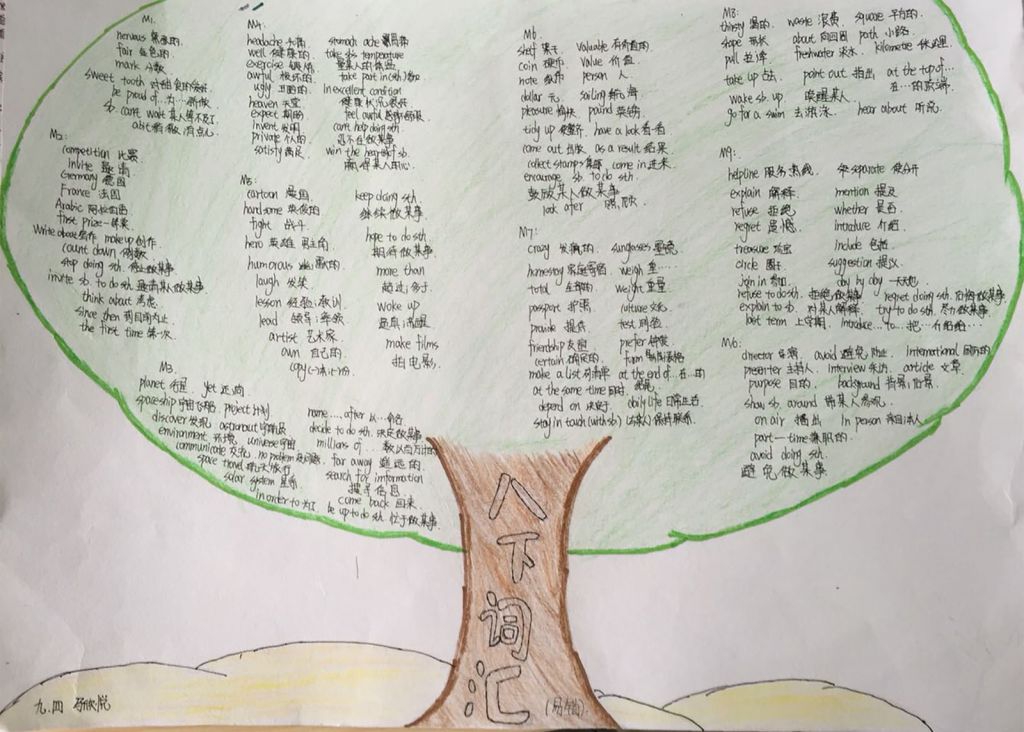 M1.
nervous 紧张的.
fair 金色的.
mark 分数
sweet tooth
be proud of…为…骄傲
sb. can't wait 某人等不及了
a bit 有点儿
M2:
competition 比赛
Invite 邀请
Germany 德国
France 法国
Arabic
first prize 一等奖
Write about 写作 make up 创作.
count down 倒数
stop doing sth. 停止做某事
invite sb. to do sth. 邀请某人做某事
think about 考虑.
since then
the first time 第一次
M3.
planet 行星 yet 还,尚
spaceship 宇宙飞船. project 计划
discover 发现 astronaut 宇航员
environment 环境. universe 宇宙
communicate 交流. no problem 没问题.
space travel 航天旅行
solar system 星系
in order to 为了.
name…after 以…命名
decide to do sth. 决定做某事
millions of…
far away 遥远的
search for imformation
搜寻信息
come back 回来.
be up to do sth.
M4:
headache 头痛
well 健康的
exercise 锻炼
awful 极坏的
ugly 丑陋的
heaven 天堂
expect 期盼
invent 发明
private 个人的
satisfy 满足
stomach ache 胃痛
take sb's temperature
量某人的体温
take part in (sth) 参加.
In excellent condition
健康状况很好
feel awful
can't help doing sth.
忍不住做某事
win the heart of sb.
赢得某人的心.
M5:
cartoon 漫画
handsome 英俊的
fight 战斗
hero 英雄 男主角
humorous 幽默的.
laugh 发笑.
lesson 经验;教训.
lead 领导;率领
artist 艺术家
own 自己的.
copy (一)本;(一)份
keep doing sth.
继续做某事
hope to do sth.
期待做某事
more than
超过;多于.
woke up
make films
拍电影.
M6.
shelf 架子 valuable 有价值的.
coin 硬币 value 价值
note 纸币 person 人.
dollar 元. sailing 航海
pleasure 愉快 pound 英镑.
tidy up 收整齐. have a look 看一看
come out 出版 as a result 结果
collect stamps 集邮. come in 进来.
encourage sb. to do sth.
鼓励某人做某事
look after 照顾.
M7:
crazy 发疯的. sunglasses 墨镜.
homestay 家庭寄宿 weigh 重…
total 全部的 weight 重量
passport 护照 culture 文化
provide 提供 test 测验
friendship 友谊 prefer 偏爱
certain 确定的. form 表格
make a list 列清单 at the end of…在…的
at the same time 同时
depend on 决定于. daily life 日常生活
stay in touch (with sb.) 保持联系.
M8:
thirsty 渴的. waste 浪费. square 平方的.
shape 形状 about 向四周 path 小路.
pull 拉;拽 freshwater 淡水. kilometre 千米;公里
take up 占去 point out 指出 at the top of…
在…的顶端
wake sb. up 唤醒某人
go for a swim 去游泳. hear about 听说.
M9:
helpline 服务热线 separate 使分开
explain 解释 mention 提及
refuse 拒绝 whether 是否
regret 遗憾 introduce 介绍.
treasure 珍宝 include 包括
circle 圈子 suggestion 提议.
join in 参加. day by day 一天天地
refuse to do sth. 拒绝做某事 regret doing sth. 后悔做某事.
explain to sb. 对某人解释. try to do sth. 尽力做某事.
last term 上学期 introduce…to…把…介绍给…
M10:
director 导演, avoid 避免,防止. international 国际的
presenter 主持人. interview 采访. article 文章.
purpose 目的. background 背景;后景
show sb. around 带某人参观.
on air 播出 In person
part-time 兼职的.
avoid doing sth.
避免做某事
八
下
词
汇
九.四